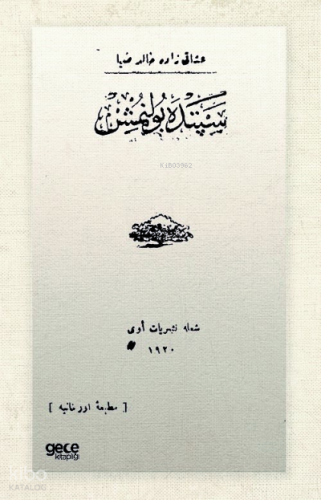 عشاقی زاده خالد ضیا
سپتده بولنمش
K1B00962
شعله نشریات أوی
١٩٢٠
[ مطبعهٔ اورخانیه ]
gece
kitaplığı
kibo
KATALOG